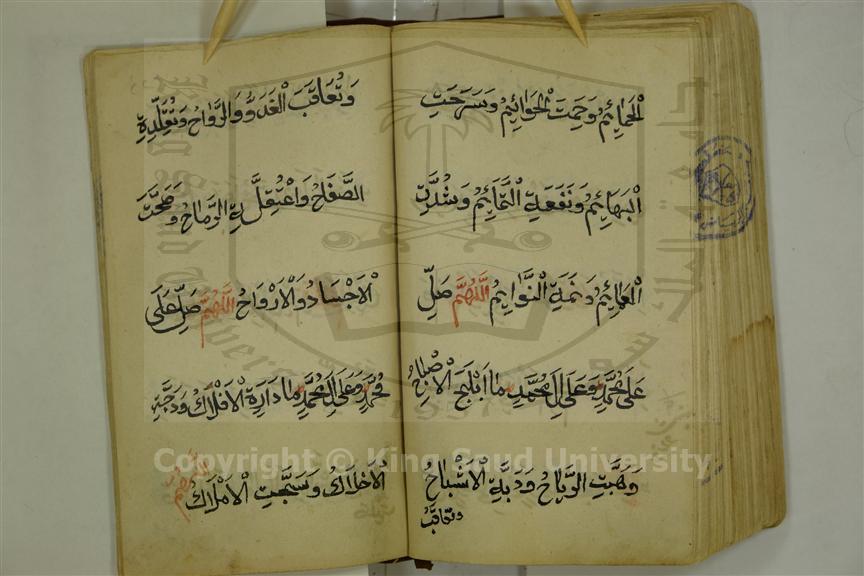 الْحَمَائِمُ وَحَمَتَ الْحَوَائِمُ وَسَرَحَتِ
الْبَهَائِمُ وَنَفَعَةِ الْتَمَائِمُ وَشُدَّتِ
الْعَمَائِمُ وَنَمَةِ النَّوَايِمُ اَللَّهُمَّ صَلِّ
عَلَى مُحَمَّدٍ وَعَلَى اٰلِ مُحَمَّدٍ مَا اَبْلَجَ الْاِصْبَاحُ
وَهَبَّتِ الرِّيَاحُ وَدَبَّةِ الْاَشْبَاحُ
وتعاقب
وَتَعَاقَبَ الْغَدَوُّ وَالرَّوَاحُ وَتُقُلِّدَةِ
الصَّفَاحُ وَاعْتُقِلَةِ الرِّمَاحُ وَصَحَّتَ
الْاَجْسَادُ وَالْاَرْوَاحُ اَللَّهُمَّ صَلِّ عَلَى
مُحَمَّدٍ وَعَلَى اٰلِ مُحَمَّدٍ مَا دَارَةِ الْاَفْلَاكُ وَدَجَةِ
الْاَحْلَاكُ وَسَبَّحَتِ الْاَمْلَاكُ اللَّهُمَّ
Copyright © King Saud University